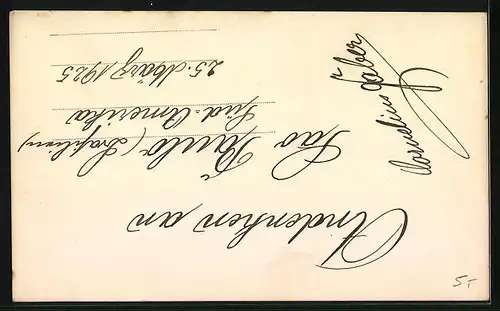 Andenken an
Sao Paulo (Brasilien)
Süd-Amerika
25. März 1925
Cornelius Faber
5.-